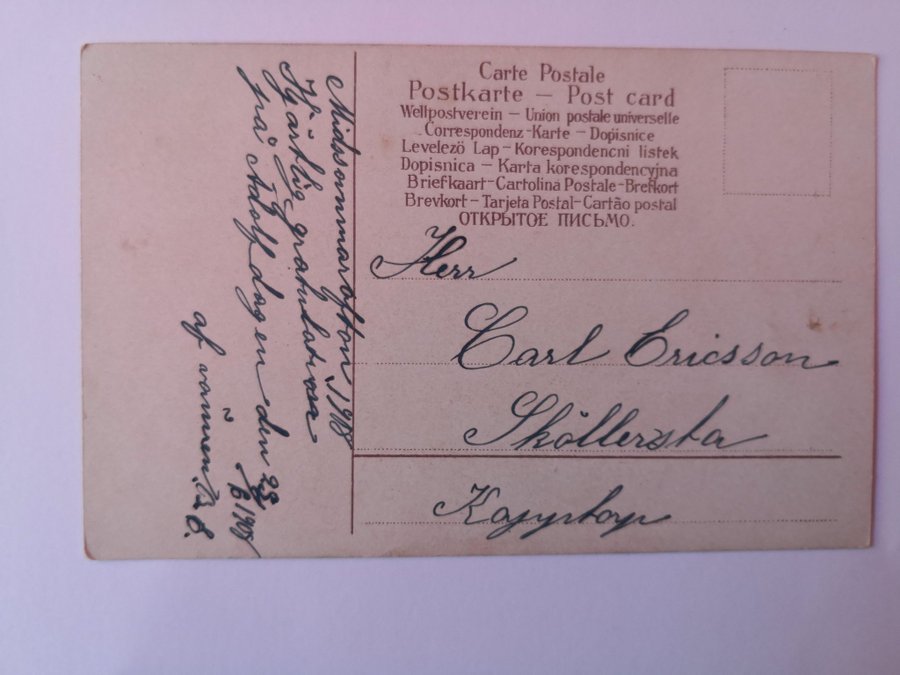 Carte Postale
Postkarte — Post card
Weltpostverein — Union postale universelle
Correspondenz-Karte — Dopisnice
Levelező Lap — Korespondencni listek
Dopisnica — Karta korespondencyjna
Briefkaart — Cartolina Postale — Brefkort
Brevkort — Tarjeta Postal — Cartão postal
ОТКРЫТОЕ ПИСЬМО.
Herr
Carl Ericsson
Sköllersta
Midsommarafton 1908
Hjärtlig gratulation
på Adolf dagen den 23
6 1908
af vännen